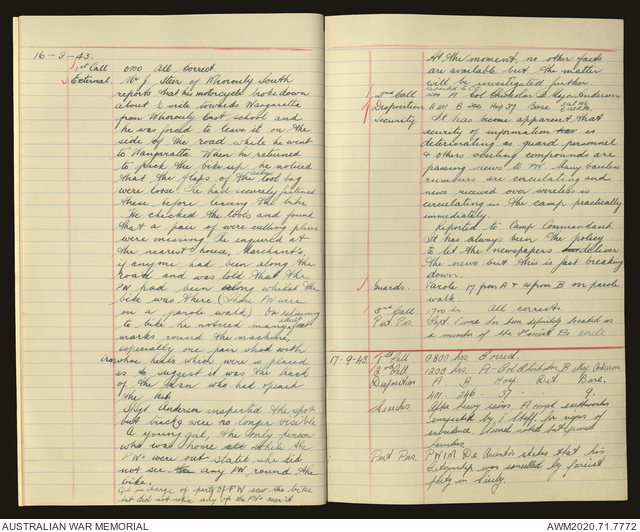 16-9-43.
1st Call 0700 All Correct
External Mr J. Steer of Whorouly South
reports that his motorcycle broke down
about ½ mile towards Wangaratta
from Whorouly East school and
he was forced to leave it on the
side of the road while he went
to Wangaratta. When he returned
to pick the bike up he noticed
that the flaps of the leather tool bag
were loose. He had securely fastened
these before leaving the bike
He checked the tools and found
that a pair of wire cutting pliers
were missing. He enquired at
the nearest house, Merchant's,
if anyone had been along the
road and was told that the
PW had been along whilst the
bike was there (These PW were
on a parole walk) On returning
to bike he noticed many foot
marks round the machine,
especially one pair shod with
iron shoe heels which were so placed
as to suggest it was the track
of the man who had opened
the kit.
Sgt Anderson inspected the spot
but tracks were no longer visible
A young girl, the only person
who was home at while the
PWs were out states she did
not see any PW round the
bike.
in charge of party of PW saw the bike
but did not notice any of the PWs near it
At the moment, no other facts
are available but the matter
will be investigated further
2nd Call A Col. Chisholm B Sgt Anderson
Disposition A 401 B 246 Hosp 37 Bare
Security It has become apparent that
security of information is
deteriorating as guard personnel
& others visiting compounds are
passing news to PW. Many baseless
rumours are circulating and
news received over wireless is
circulating in the camp practically
immediately.
Reported to Camp Commandant.
It has always been the policy
to let the newspapers deliver
the news but this is fast breaking
down.
Guards. Parole 17 from A & from B on parole
walk.
3rd Call 1700 hrs All correct.
Part. Pars. definitely located as
a member of the Fascist B circle
17-9-43. 1st Call 0800 hrs Correct.
2nd Call 1200 hrs. A - Col Chisholm B
Disposition A. B. Hosp. Det. Bare.
401 . 246 . 37 . . 9.
Searches After heavy rains. A compd earthworks
inspected by I Staff for signs of
subsidence
Part Pars. PW states that his
was cancelled by fascist
party in Sicily.
AUSTRALIAN WAR MEMORIAL
AWM2020.71.7772